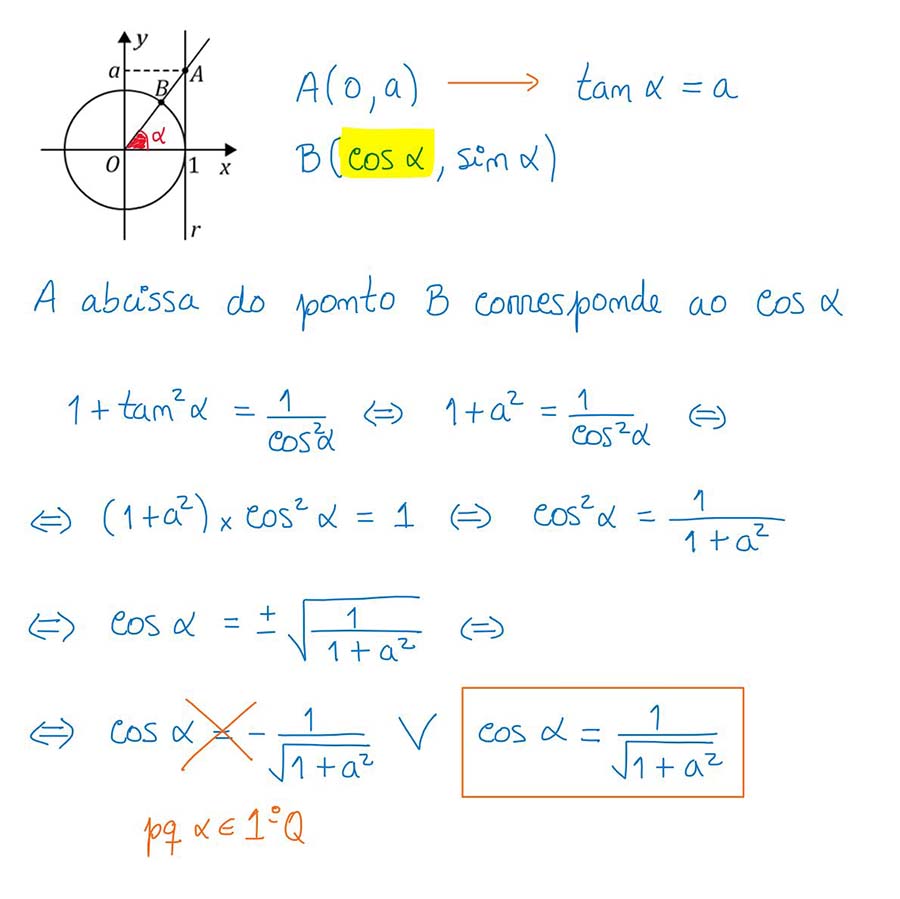 y
a
A
B
α
O
1
x
r
A(0,a) ⟶ tan α = a
B(cos α, sin α)
A abcissa do ponto B corresponde ao cos α
1 + tan²α = 1/cos²α ⇔ 1 + a² = 1/cos²α ⇔
⇔ (1+a²) × cos²α = 1 ⇔ cos²α = 1/(1+a²)
⇔ cos α = ±√(1/(1+a²)) ⇔
⇔ cos α = −1/√(1+a²) ∨ cos α = 1/√(1+a²)
pq α ∈ 1ºQ